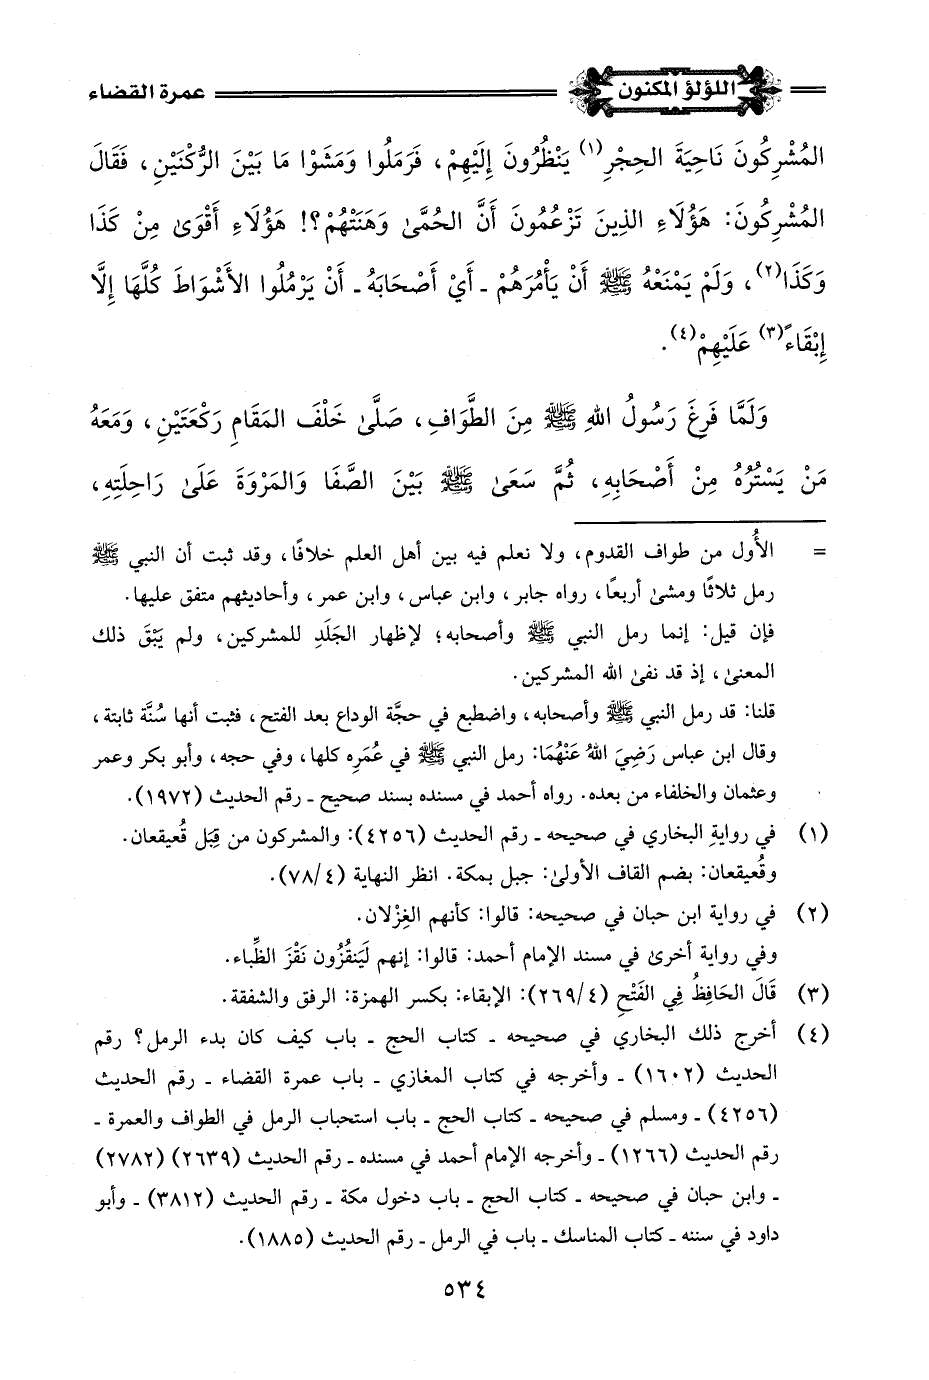 اللؤلؤ المكنون
عمرة القضاء
المُشْرِكُونَ نَاحِيَةَ الحِجْرِ(١) يَنْظُرُونَ إِلَيْهِمْ، فَرَمَلُوا وَمَشَوْا مَا بَيْنَ الرُّكْنَيْنِ، فَقَالَ
المُشْرِكُونَ: هَؤُلَاءِ الذِينَ تَزْعُمُونَ أَنَّ الحُمَّىٰ وَهَنَتْهُمْ؟! هَؤُلَاءِ أَقْوَىٰ مِنْ كَذَا
وَكَذَا(٢)، وَلَمْ يَمْنَعْهُ ﷺ أَنْ يَأْمُرَهُمْ ـ أَيْ أَصْحَابَهُ ـ أَنْ يَرْمُلُوا الأَشْوَاطَ كُلَّهَا إِلَّا
إِبْقَاءً(٣) عَلَيْهِمْ(٤).
وَلَمَّا فَرِغَ رَسُولُ اللهِ ﷺ مِنَ الطَّوَافِ، صَلَّىٰ خَلْفَ المَقَامِ رَكْعَتَيْنِ، وَمَعَهُ
مَنْ يَسْتُرُهُ مِنْ أَصْحَابِهِ، ثُمَّ سَعَىٰ ﷺ بَيْنَ الصَّفَا وَالمَرْوَةَ عَلَىٰ رَاحِلَتِهِ،
= الأُول من طواف القدوم، ولا نعلم فيه بين أهل العلم خلافًا، وقد ثبت أن النبي ﷺ
رمل ثلاثًا ومشىٰ أربعًا، رواه جابر، وابن عباس، وابن عمر، وأحاديثهم متفق عليها.
فإن قيل: إنما رمل النبي ﷺ وأصحابه؛ لإظهار الجَلَدِ للمشركين، ولم يَبْقَ ذلك
المعنىٰ، إذ قد نفىٰ الله المشركين.
قلنا: قد رمل النبي ﷺ وأصحابه، واضطبع في حجَّة الوداع بعد الفتح، فثبت أنها سُنَّة ثابتة،
وقال ابن عباس رَضِيَ اللهُ عَنْهُمَا: رمل النبي ﷺ في عُمَرِه كلها، وفي حجه، وأبو بكر وعمر
وعثمان والخلفاء من بعده. رواه أحمد في مسنده بسند صحيح ـ رقم الحديث (١٩٧٢).
(١) في روايةِ البخاري في صحيحه ـ رقم الحديث (٤٢٥٦): والمشركون من قِبَل قُعيقعان.
وقُعيقعان: بضم القاف الأولىٰ: جبل بمكة. انظر النهاية (٧٨/٤).
(٢) في رواية ابن حبان في صحيحه: قالوا: كأنهم الغِزْلان.
وفي رواية أخرىٰ في مسند الإمام أحمد: قالوا: إنهم لَيَنقُزُون نَقْزَ الظِّباء.
(٣) قَالَ الحَافِظُ فِي الفَتْحِ (٢٦٩/٤): الإبقاء: بكسر الهمزة: الرفق والشفقة.
(٤) أخرج ذلك البخاري في صحيحه ـ كتاب الحج ـ باب كيف كان بدء الرمل؟ رقم
الحديث (١٦٠٢) ـ وأخرجه في كتاب المغازي ـ باب عمرة القضاء ـ رقم الحديث
(٤٢٥٦) ـ ومسلم في صحيحه ـ كتاب الحج ـ باب استحباب الرمل في الطواف والعمرة ـ
رقم الحديث (١٢٦٦) ـ وأخرجه الإمام أحمد في مسنده ـ رقم الحديث (٢٦٣٩) (٢٧٨٢)
ـ وابن حبان في صحيحه ـ كتاب الحج ـ باب دخول مكة ـ رقم الحديث (٣٨١٢) ـ وأبو
داود في سننه ـ كتاب المناسك ـ باب في الرمل ـ رقم الحديث (١٨٨٥).
٥٣٤